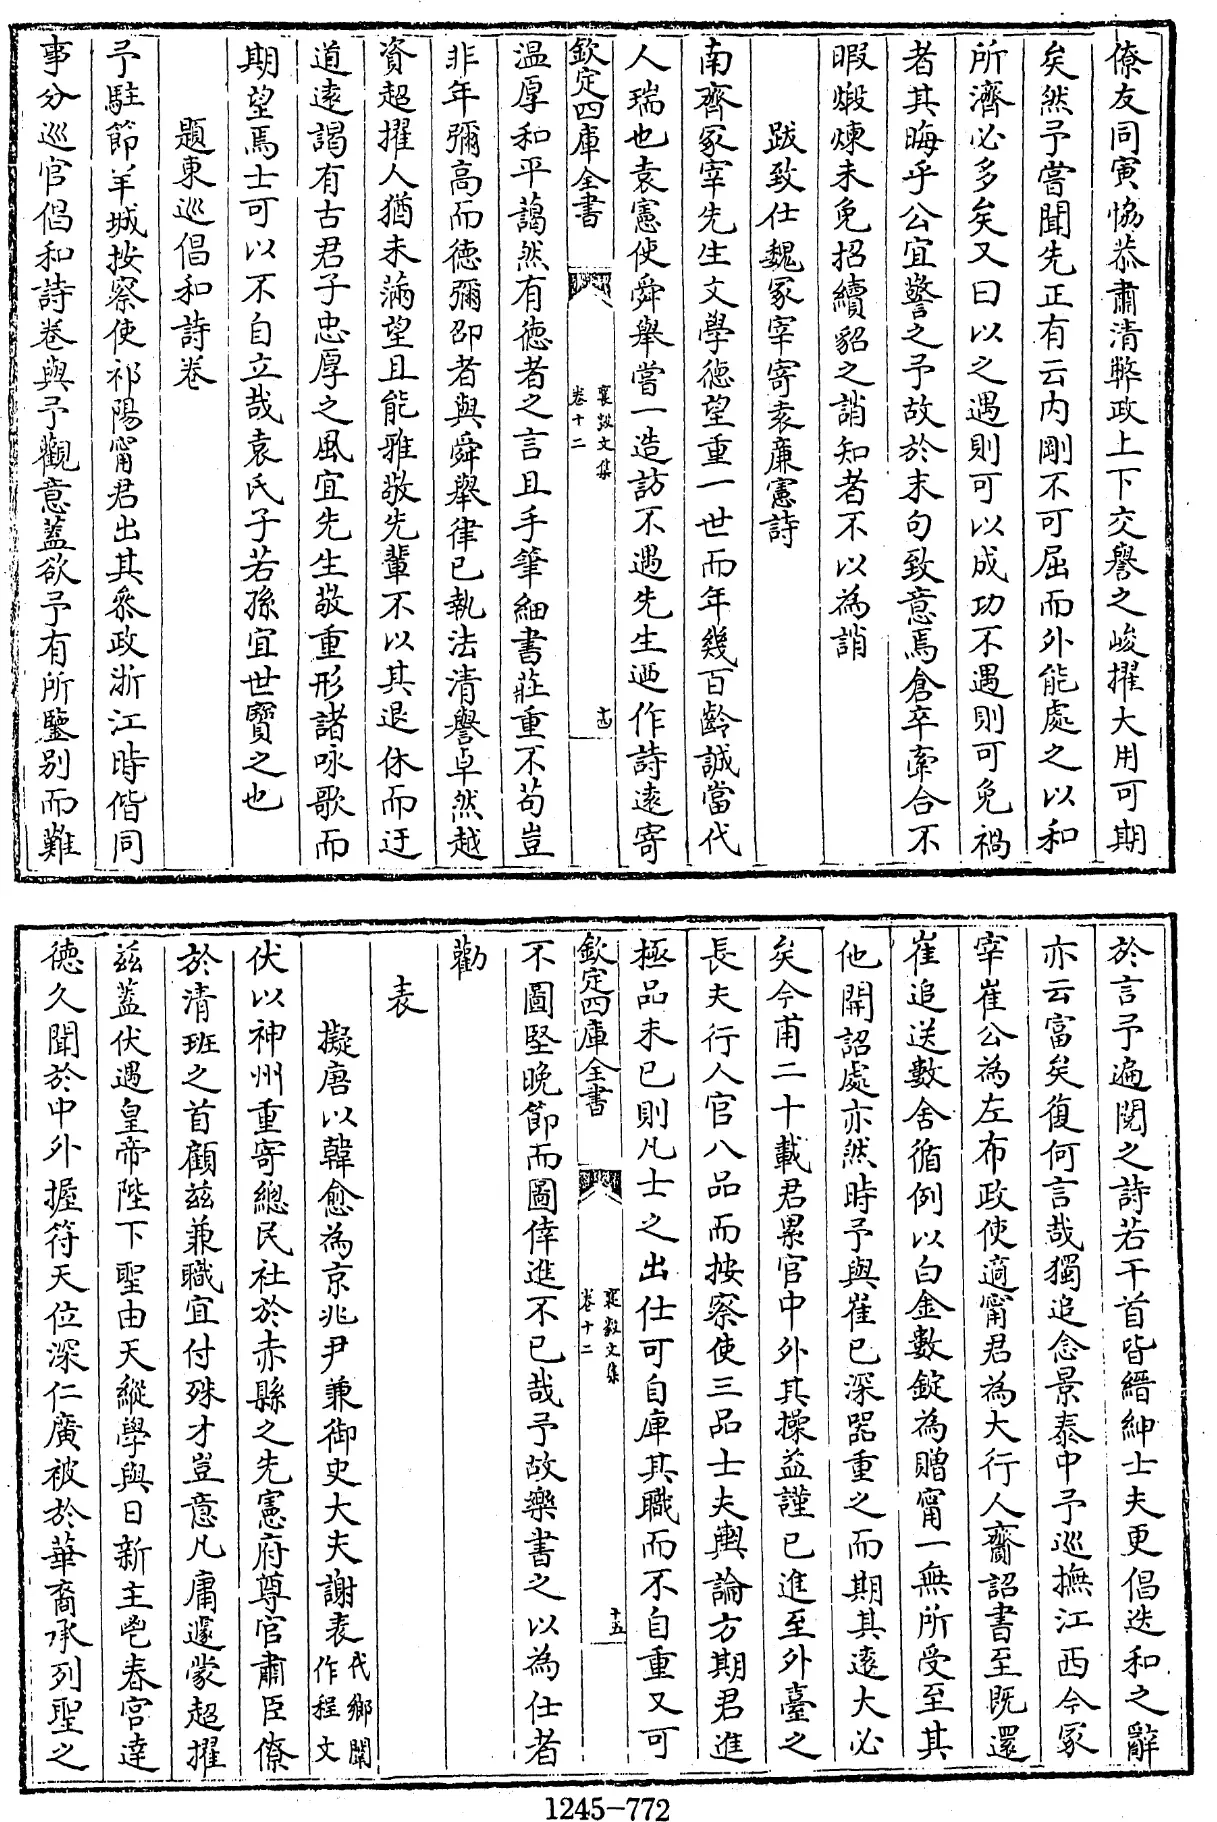 僚友同寅恊恭肅清弊政上下交譽之峻擢大用可期
矣然予嘗聞先正有云内剛不可屈而外能處之以和
所濟必多矣又曰以之遇則可以成功不遇則可免禍
者其晦乎公宜警之予故於末句致意焉倉卒牽合不
暇煅煉未免招續貂之誚知者不以為誚
跋致仕魏冢宰寄袁廉憲詩
南齊冢宰先生文學德望重一世而年幾百齡誠當代
人瑞也袁憲使舜舉嘗一造訪不遇先生廼作詩遠寄
欽定四庫全書
襄毅文集
卷十二
十四
温厚和平藹然有德者之言且手筆細書莊重不苟豈
非年彌高而德彌卲者與舜舉律已執法清譽卓然越
資超擢人猶未滿望且能雅敬先輩不以其退休而迂
道逺謁有古君子忠厚之風宜先生敬重形諸咏歌而
期望焉士可以不自立哉袁氏子若孫宜世寳之也
題東巡倡和詩卷
予駐節羊城按察使祁陽甯君出其叅政浙江時偕同
事分巡官倡和詩卷與予觀意蓋欲予有所鑒别而難
於言予遍閱之詩若干首皆縉紳士夫更倡迭和之辭
亦云富矣復何言哉獨追念景泰中予巡撫江西今冢
宰崔公為左布政使適甯君為大行人齎詔書至既還
崔追送數舍循例以白金數錠為贈甯一無所受至其
他開詔處亦然時予與崔已深器重之而期其逺大必
矣今甫二十載君累官中外其操益謹已進至外臺之
長夫行人官八品而按察使三品士夫輿論方期君進
極品未已則凡士之出仕可自庳其職而不自重又可
欽定四庫全書
襄毅文集
卷十二
十五
不圖堅晚節而圖倖進不已哉予故樂書之以為仕者
勸
表
擬唐以韓愈為京兆尹兼御史大夫謝表代鄉闈作程文
伏以神州重寄總民社於赤縣之先憲府尊官肅臣僚
於清班之首顧兹兼職宜付殊才豈意凡庸遽蒙超擢
兹蓋伏遇皇帝陛下聖由天縱學與日新主鬯春宫達
德久聞於中外握符天位深仁廣被於華裔承列聖之
1245-772